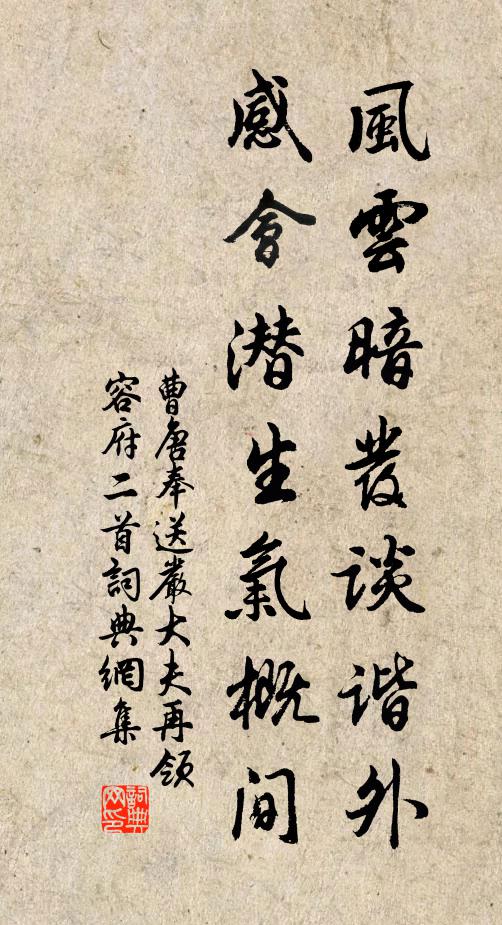 風雲暗發談谐外
感會潜生氣概间
曹唐奉送嚴大夫再领
容府二首詞典網集
詞典网印